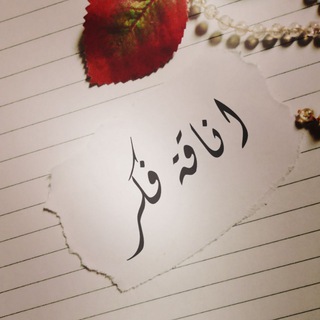 اناقة فكر